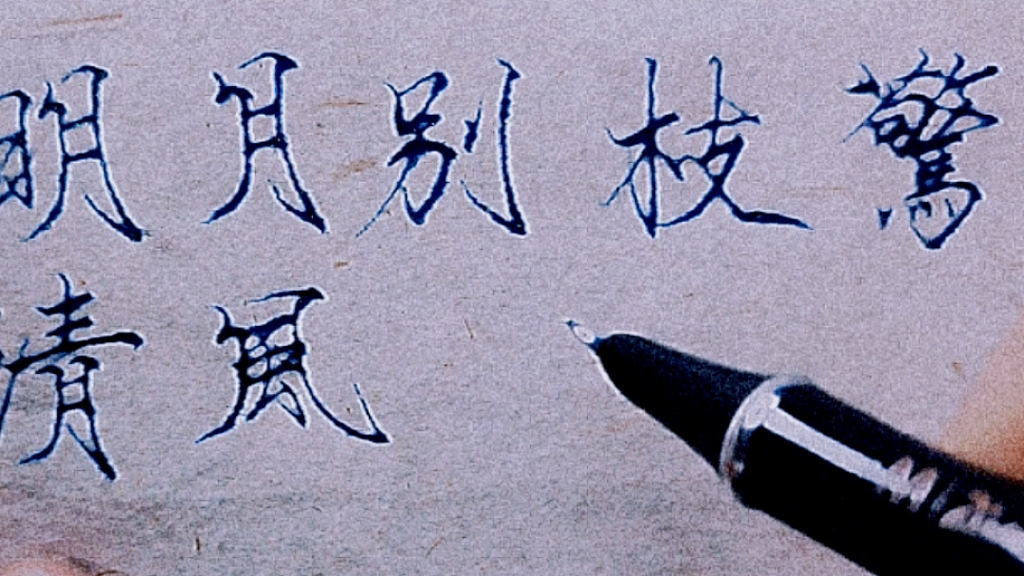 明月别枝驚
清風